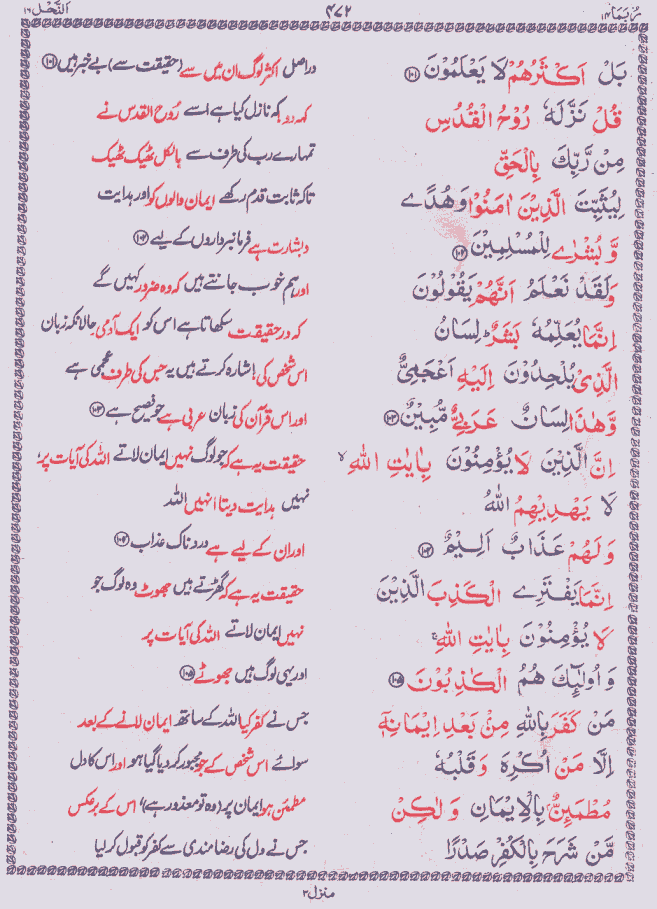 رُبَمَا ١٤ ٤٧٢ اَلنَّحْل ١٦
بَلْ اَكْثَرُهُمْ لَا يَعْلَمُوْنَ ١٠١ دراصل اکثر لوگ ان میں سے (حقیقت سے) بے خبر ہیں ١٠١
قُلْ نَزَّلَهٗ رُوْحُ الْقُدُسِ کہہ دو کہ نازل کیا ہے اسے رُوح القدس نے
مِنْ رَّبِّكَ بِالْحَقِّ تمہارے رب کی طرف سے بالکل ٹھیک ٹھیک
لِيُثَبِّتَ الَّذِيْنَ اٰمَنُوْا وَهُدًے تاکہ ثابت قدم رکھے ایمان والوں کو اور ہدایت
وَّ بُشْرٰے لِلْمُسْلِمِيْنَ ١٠٢ و بشارت ہے فرمانبرداروں کے لیے ١٠٢
وَلَقَدْ نَعْلَمُ اَنَّهُمْ يَقُوْلُوْنَ اور ہم خوب جانتے ہیں کہ وہ ضرور کہیں گے
اِنَّمَا يُعَلِّمُهٗ بَشَرٌ ؕ لِسَانُ کہ درحقیقت سکھاتا ہے اس کو ایک آدمی حالانکہ زبان
الَّذِيْ يُلْحِدُوْنَ اِلَيْهِ اَعْجَمِيٌّ اس شخص کی اشارہ کرتے ہیں یہ جس کی طرف عجمی ہے
وَّهٰذَا لِسَانٌ عَرَبِيٌّ مُّبِيْنٌ ١٠٣ اور اس قرآن کی زبان عربی ہے جو فصیح ہے ١٠٣
اِنَّ الَّذِيْنَ لَا يُؤْمِنُوْنَ بِاٰيٰتِ اللّٰهِ ۙ حقیقت یہ ہے کہ جو لوگ نہیں ایمان لاتے اللہ کی آیات پر،
لَا يَهْدِيْهِمُ اللّٰهُ نہیں ہدایت دیتا انہیں اللہ
وَلَهُمْ عَذَابٌ اَلِيْمٌ ١٠٤ اور ان کے لیے ہے دردناک عذاب ١٠٤
اِنَّمَا يَفْتَرِے الْكَذِبَ الَّذِيْنَ حقیقت یہ ہے کہ گھڑتے ہیں جھوٹ وہ لوگ جو
لَا يُؤْمِنُوْنَ بِاٰيٰتِ اللّٰهِ ۚ نہیں ایمان لاتے اللہ کی آیات پر
وَ اُولٰٓئِكَ هُمُ الْكٰذِبُوْنَ ١٠٥ اور یہی لوگ ہیں جھوٹے ١٠٥
مَنْ كَفَرَ بِاللّٰهِ مِنْۢ بَعْدِ اِيْمَانِهٖٓ جس نے کفر کیا اللہ کے ساتھ ایمان لانے کے بعد
اِلَّا مَنْ اُكْرِهَ وَ قَلْبُهٗ سوائے اس شخص کے جو مجبور کر دیا گیا ہو اور اس کا دل
مُطْمَئِنٌّۢ بِالْاِيْمَانِ وَ لٰكِنْ مطمئن ہو ایمان پر (وہ تو معذور ہے)' اس کے برعکس
مَّنْ شَرَحَ بِالْكُفْرِ صَدْرًا جس نے دل کی رضامندی سے کفر کو قبول کر لیا
منزل ٣